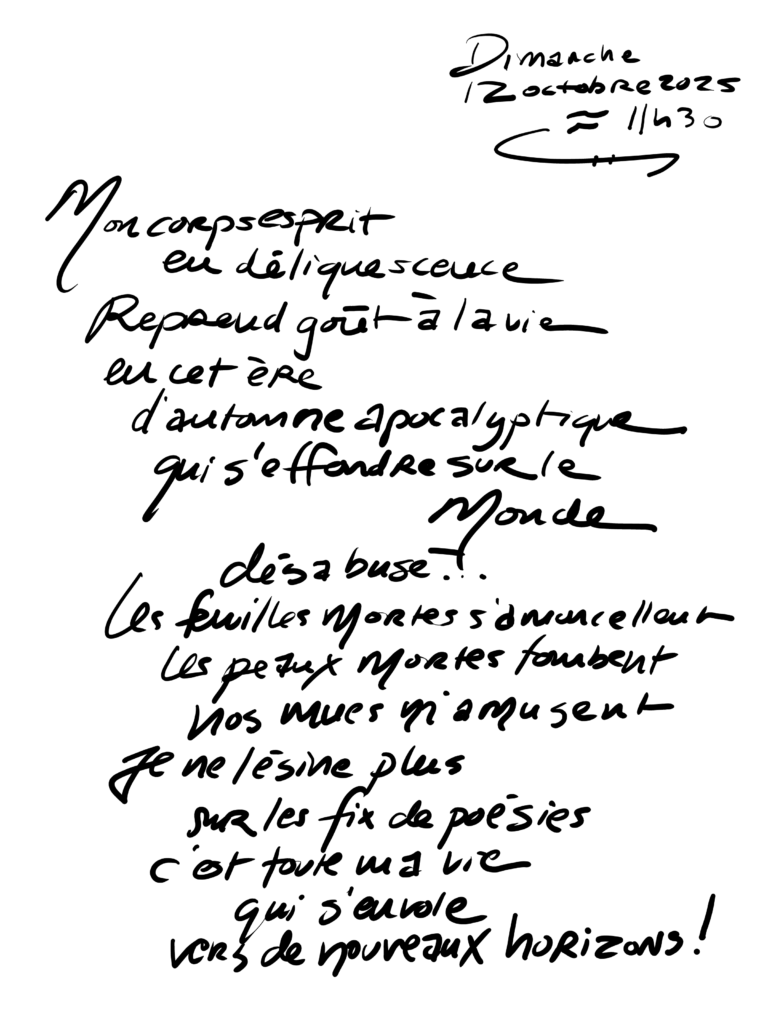 Dimanche
12 octobre 2025
≈ 11h30
Mon corps esprit
en déliquescence
Reprend goût à la vie
en cet ère
d'automne apocalyptique
qui s'effondre sur le
Monde
désabusé...
Les feuilles mortes s'amoncellent
les peaux mortes tombent
nos mues m'amusent
Je ne lésine plus
sur les fix de poésies
c'est toute ma vie
qui s'envole
vers de nouveaux horizons!